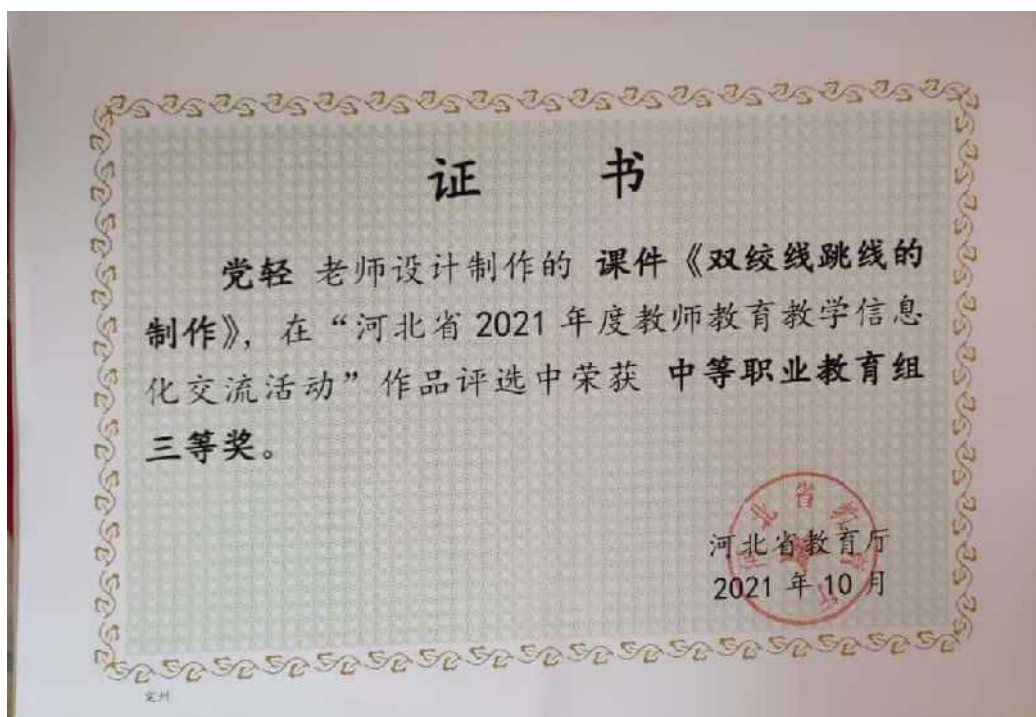 证 书
党轻 老师设计制作的 课件《双绞线跳线的
制作》，在“河北省 2021 年度教师教育教学信息
化交流活动”作品评选中荣获 中等职业教育组
三等奖。
河北省教育厅
2021 年 10 月
河北省教育厅
定州